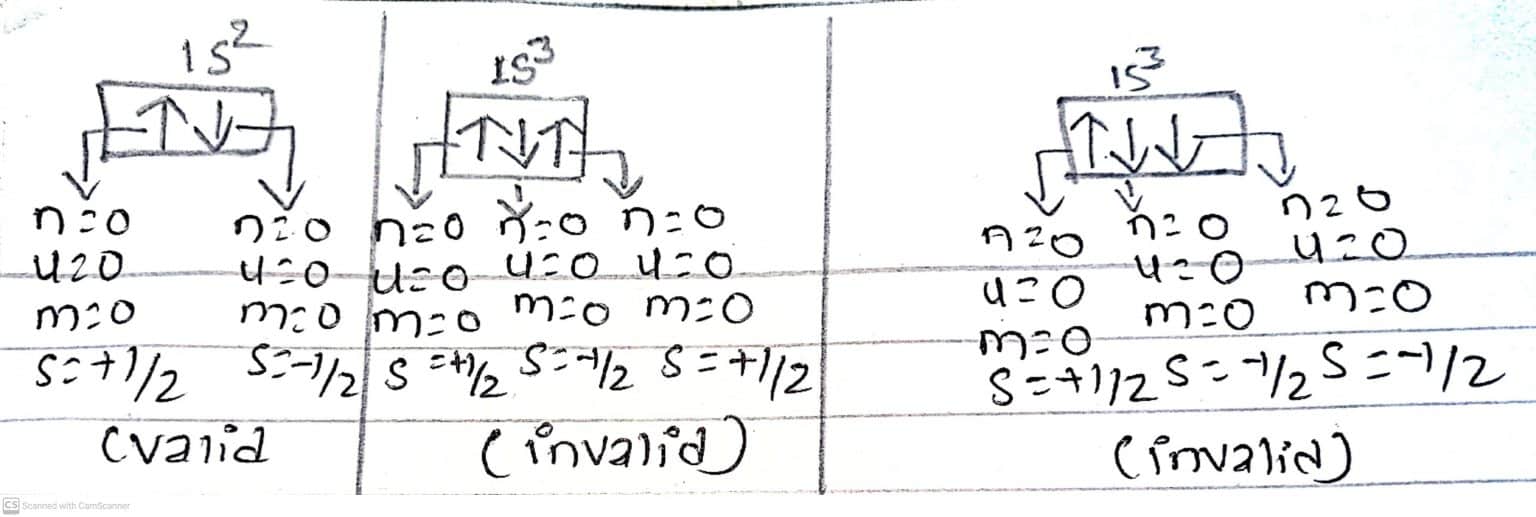 1s² 1s³ 1s³
↑↓ ↑↓↑ ↑↓↓
n=0 n=0 n=0 n=0 n=0 n=0 n=0 n=0
u=0 u=0 u=0 u=0 u=0 u=0 u=0 u=0
m=0 m=0 m=0 m=0 m=0 m=0 m=0 m=0
s=+1/2 s=-1/2 s=+1/2 s=-1/2 s=+1/2 s=+1/2 s=-1/2 s=-1/2
(valid (invalid) (invalid)
CS Scanned with CamScanner